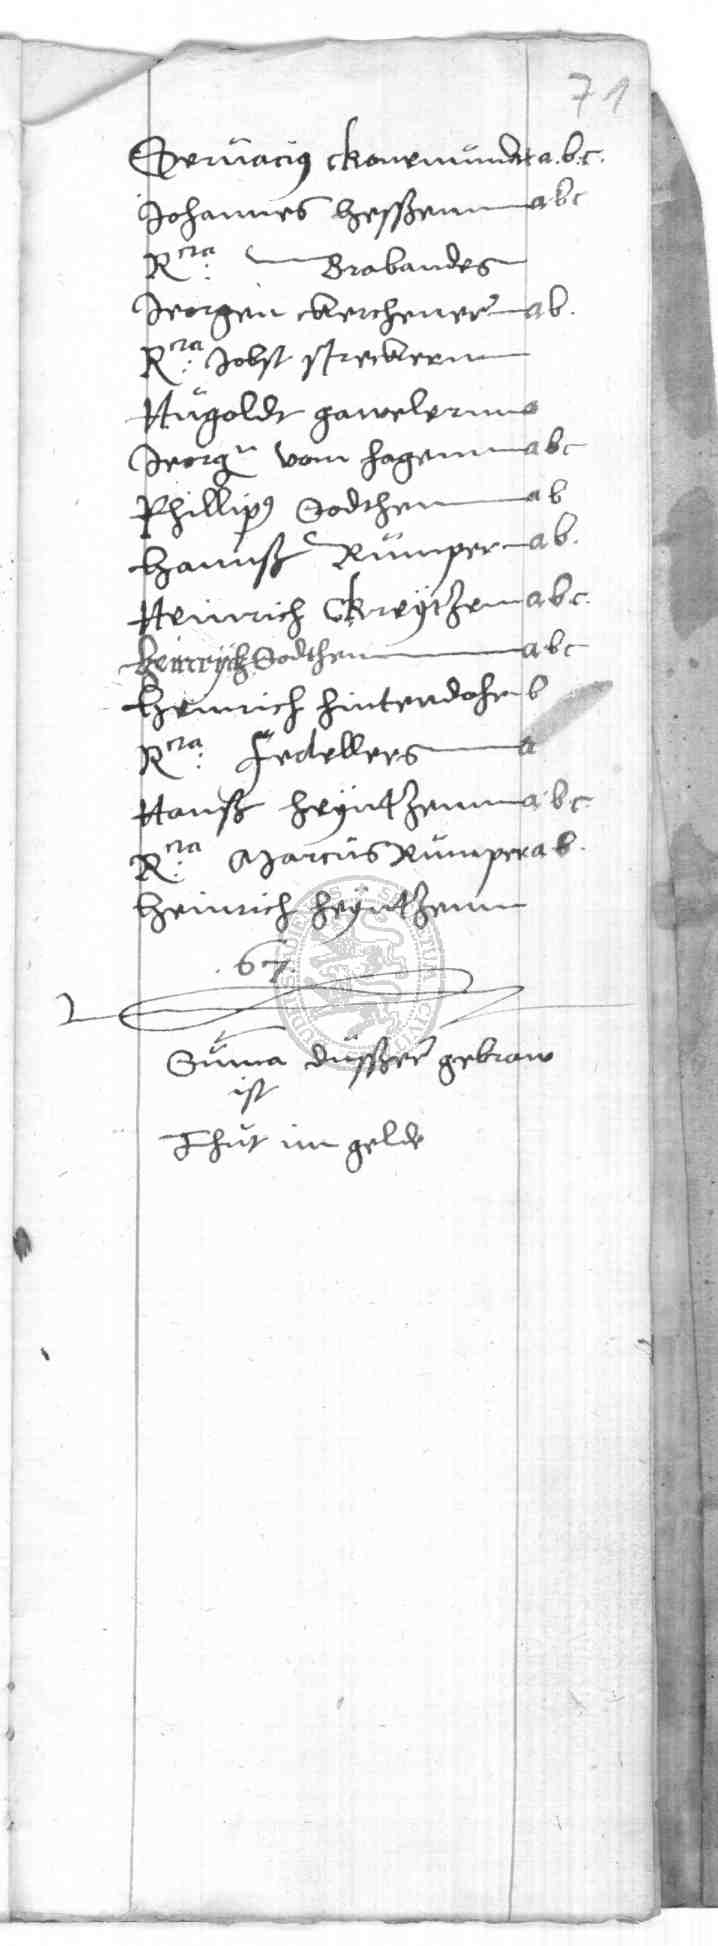 71
Servacius ckonemundt a.b.c.
Johannes hesszenn abc
Rcta: Brabandes
Jeorgen ckerchener ab.
Rcta: Jobst streckerun
Hugoldt gawelerun a
Jeorgn vom hagenn abc
Phillips Sodthen ab
hannß Rümper ab.
Heinrich Ckreytzen abc.
heinrych Sodthen abc
heinrich hinterdohr b
Rcta: Fedellers a
Hanß heyntzenn abc
Rcta: Marcus Rümper ab.
heinrich heyntzenn
.67.
Suma düsszer gebraw
ist
Thut im gelde